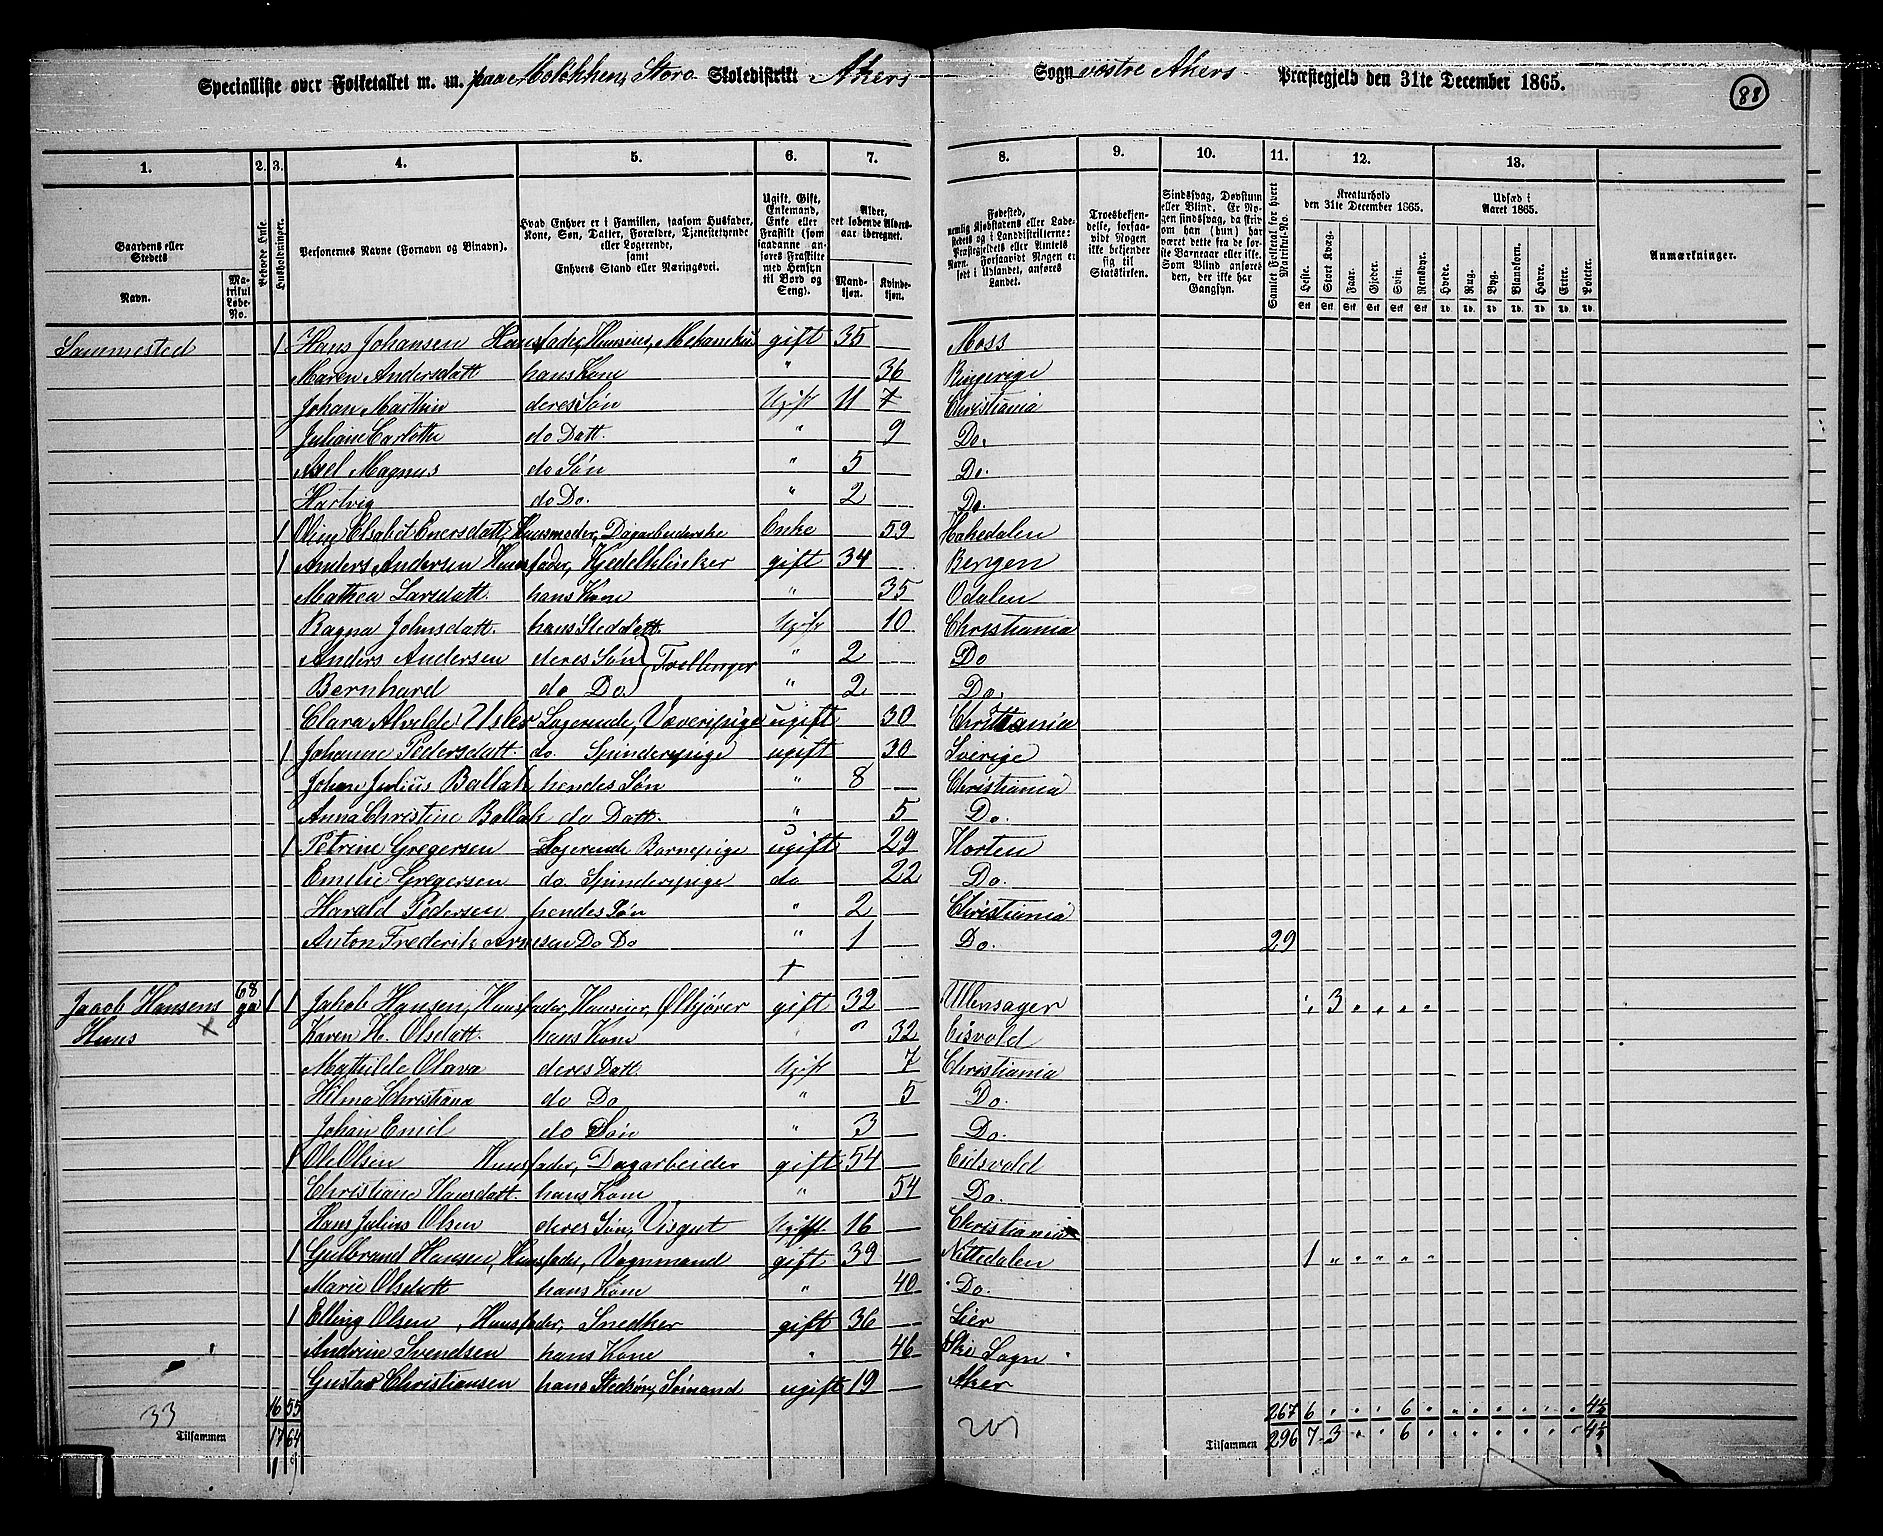 Specialliste over Folketallet m. m. paa Moløkken, Storo Skoledistrikt Akers Sogn vestre Akers Præstegjeld den 31te December 1865.
88
1. 2. 3. 4. 5. 6. 7. 8. 9. 10. 11. 12. 13.
Gaardens eller Stedets
Navn.
Matrikul Løbe-No.
Beboede Huse.
Husholdninger.
Personernes Navne (Fornavn og Binavn).
Hvad Enhver er i Familien, saasom Husfader, Kone, Søn, Datter, Forældre, Tjenestetyende eller Logerende, samt Enhvers Stand eller Næringsvei.
Ugift, Gift, Enkemand, Enke eller Fraskilt (som saadanne anføres Fraskilte med Hensyn til Bord og Seng).
Alder, det løbende Alders-aar iberegnet.
Mand-kjøn. Kvinde-kjøn.
Fødested, nemlig Kjøbstadens eller Ladestedets og i Landdistrikterne: Præstegjeldets eller Amtets Navn. Forsaavidt Nogen er født i Udlandet, anføres Landet.
Troesbekjendelse, forsaavidt Nogen ikke bekjender sig til Statskirken.
Sindssvag, Døvstum eller Blind. Er Nogen sindssvag, da skrives om han (hun) har været dette fra de første Barneaar eller ikke. Som Blind anføres den, der ikke har Gangsyn.
Samlet Folketal for hvert Matrikul-No.
Kreaturhold den 31te December 1865.
Heste. Stort Kvæg. Faar. Gjeder. Svin. Rensdyr.
Udsæd i Aaret 1865.
Hvede. Rug. Byg. Blandkorn. Havre. Erter. Poteter.
Anmærkninger.
Sammested 1 Hans Johansen Huusfader, Huuseier, Mekanikus gift 35 Moss
Maren Andersdatt hans Kone " 36 Ringerige
Johan Marthin deres Søn Ugift 11 7 Christiania
Juliane Carlotte do Datt. " 9 Do.
Axel Magnus do Søn " 5 Do.
Hartvig do Do. " 2 Do.
1 Oline Elsabet Enersdatt, Huusmoder, Dagarbeiderske Enke 59 Hakedalen
1 Anders Andersen Huusfader, Kjedelklinker gift 34 Bergen
Mathea Larsdatt. hans Kone " 35 Odalen
Ragna Johnsdatt. hans Steddatt. Ugift 10 Christiania
Anders Andersen deres Søn } Tvillinger " 2 Do
Bernhard do Do. " 2 Do.
Clara Alvilde Usler Logerende, Væveripige ugift 30 Christiania
1 Johanne Pedersdatt. do. Spinderpige ugift 30 Sverige
Johan Julius Ballak hendes Søn " 8 Christiania
Anna Christine Ballak do Datt. " 5 Do.
1 Petrine Gregersen Logerende Barnepige ugift 29 Horten
Emilie Gregersen do. Spinderpige do 22 Do.
Harald Pedersen hendes Søn " 2 Christiania
Anton Frederik Arnesen Do Do " 1 Do. 29
Jacob Hansens 68 ga 1 1 Jakob Hansen, Huusfader, Huuseier, Ølkjører gift 32 Ullensager 3
Huus × Karen H. Olsdatt. hans Kone " 32 Eisvold
Mathilde Olava deres Datt. Ugift 7 Christiania
Hilma Christiana do Do " 5 Do.
Johan Emil do Søn " 3 Do.
1 Ole Olsen Huusfader, Dagarbeider gift 54 Eidsvold
Christiane Hansdatt. hans Kone " 54 Do.
Hans Julius Olsen deres Søn, Visgut Ugift 16 Christiania
1 Gulbrand Hansen, Huusfader, Vognmand gift 39 Nittedalen 1
Marie Olsdatt hans Kone " 40 Do.
1 Elling Olsen, Huusfader, Snedker gift 36 Lier
Andrine Svendsen hans Kone " 46 Ski Sogn
Gustav Christiansen hans Stedsøn, Sømand ugift 19 Aker
33 16 55 267 6 6 4½
Tilsammen 17 64 Tilsammen 296 7 3 6 4½
1